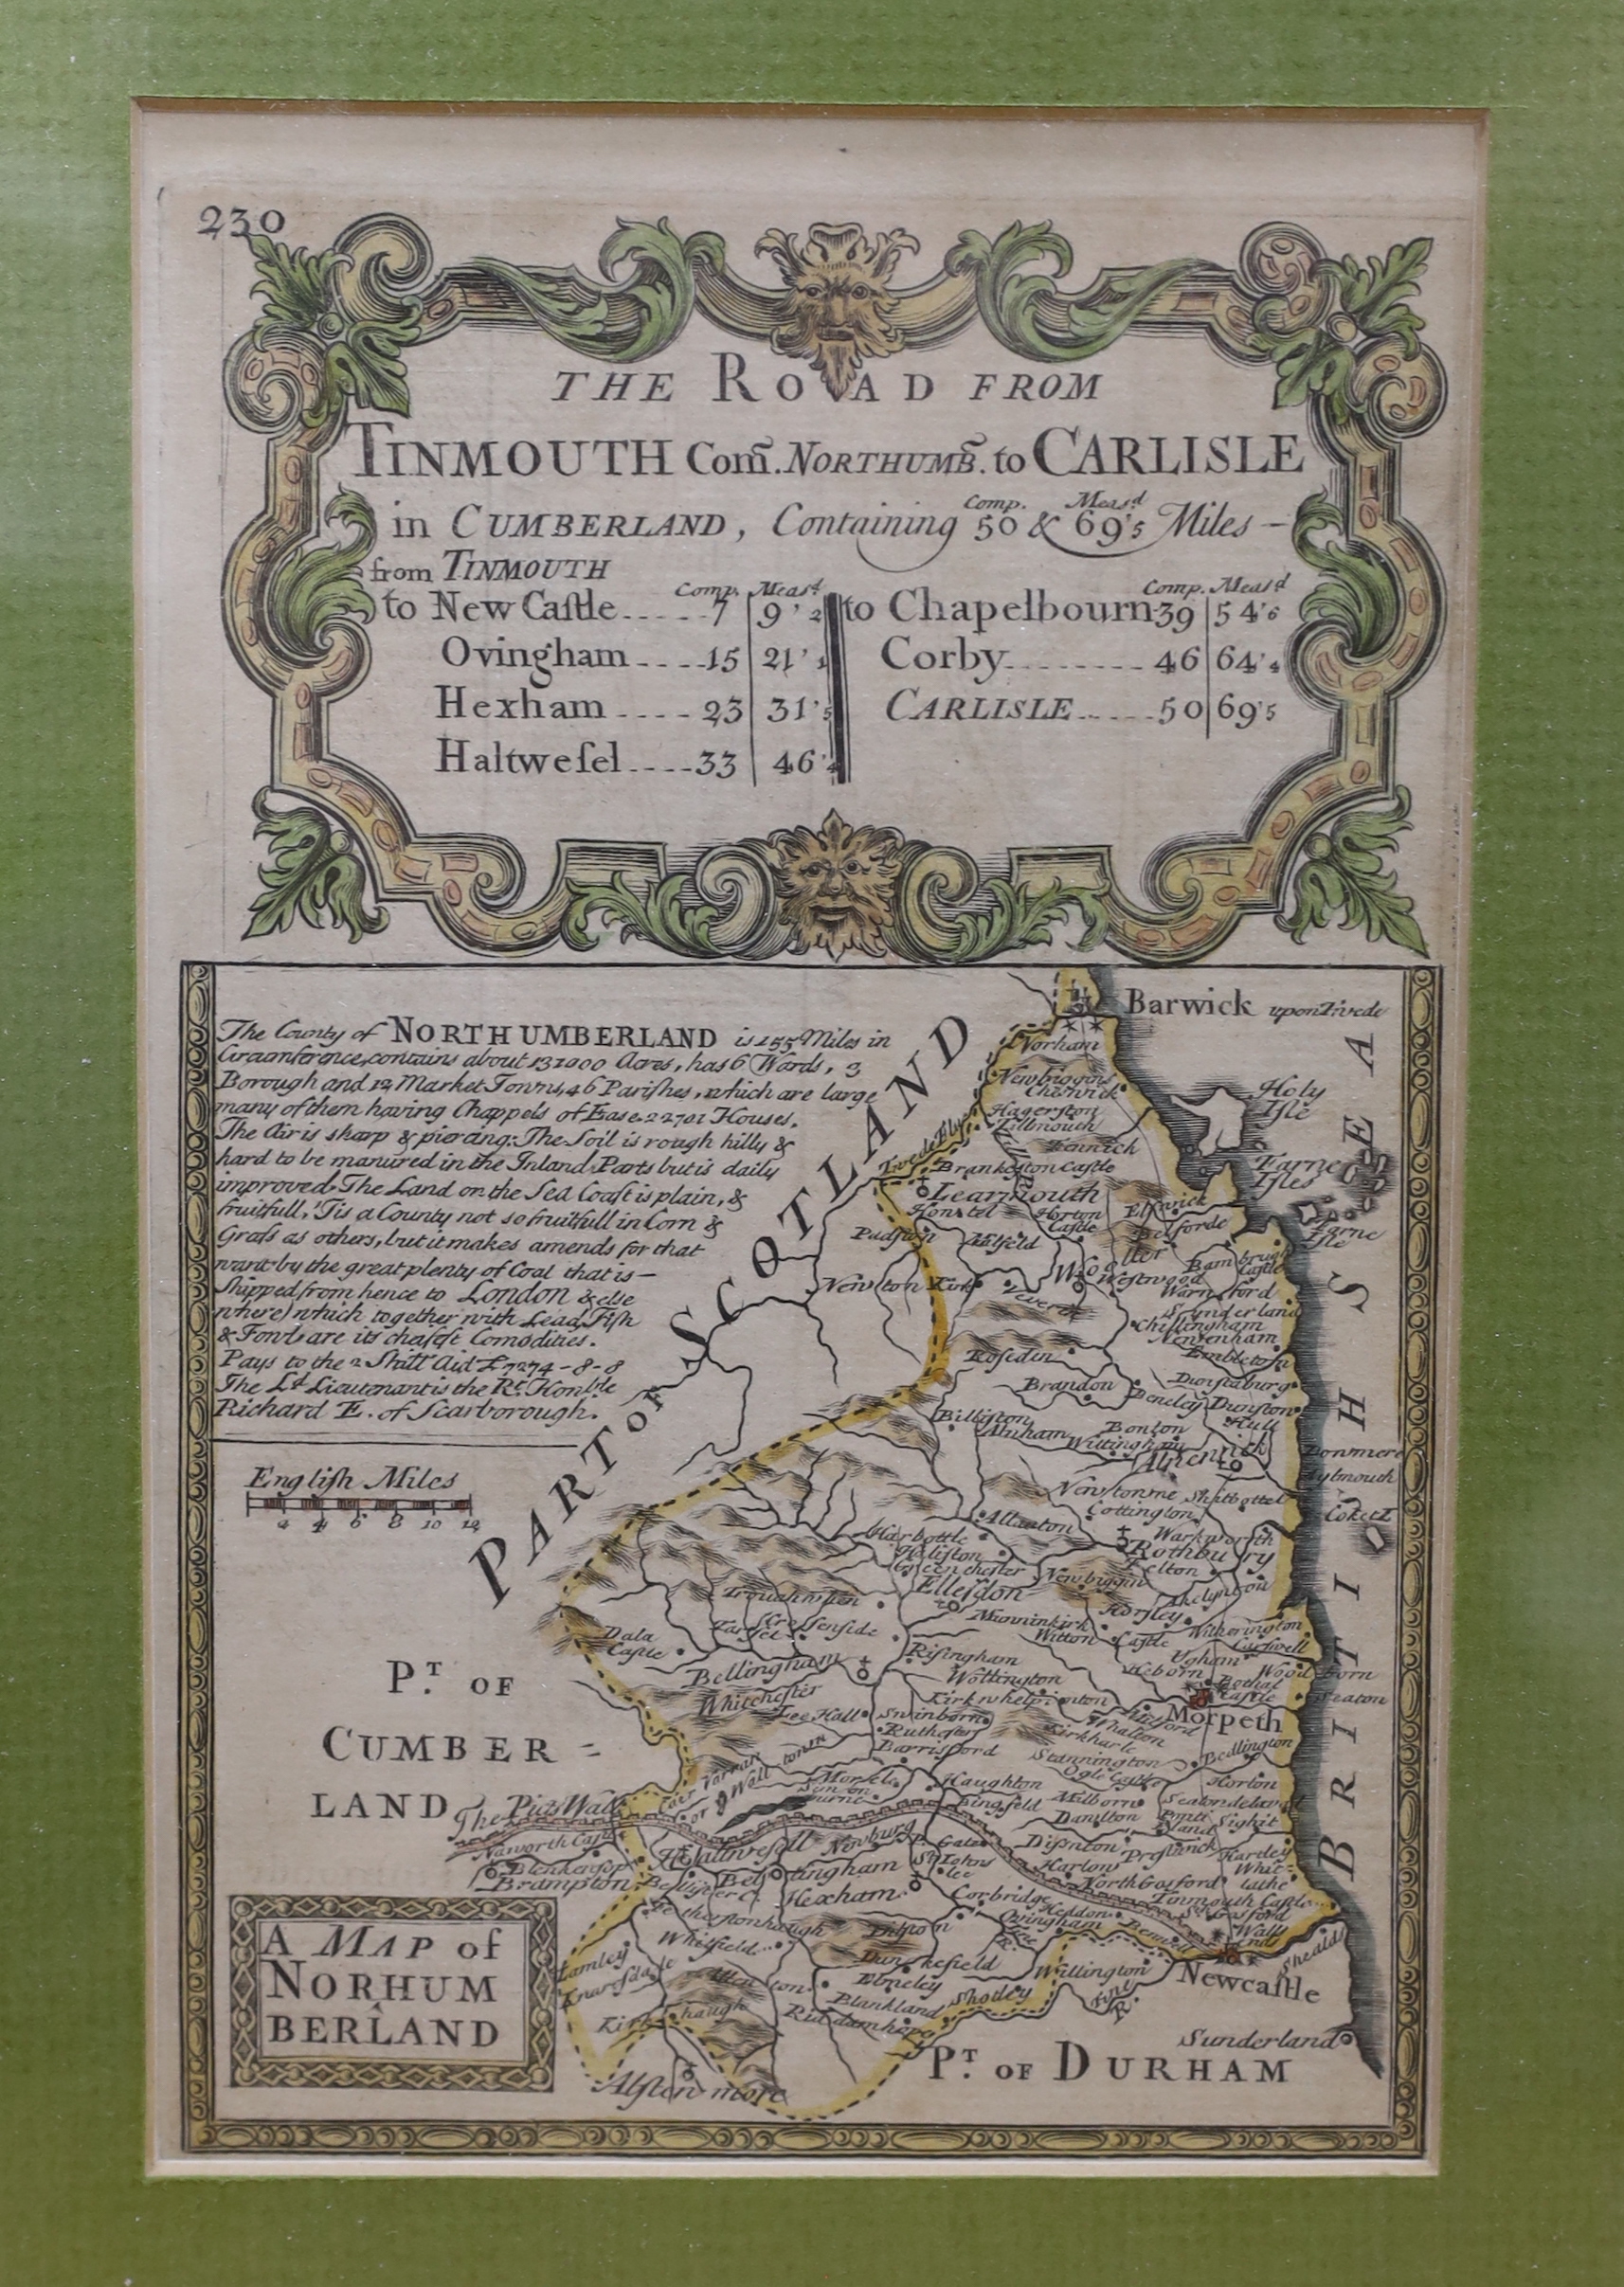 230
THE ROAD FROM
TINMOUTH Com̃. NORTHUMB̃. to CARLISLE
in CUMBERLAND, Containing Comp. 50 & Measd 69'5 Miles -
from TINMOUTH
Comp. Measd
to New Caſtle 7 9'2
Ovingham 15 21'1
Hexham 23 31'5
Haltweſel 33 46'4
Comp. Measd
to Chapelbourn 39 54'6
Corby 46 64'4
CARLISLE 50 69'5
The County of NORTHUMBERLAND is 155 Miles in
Circumference, contains about 131000 Acres, has 6 Wards, 3
Borough and 12 Market Towns, 46 Pariſhes, which are large
many of them having Chappels of Ease. 22701 Houses.
The Air is sharp & piercing: The Soil is rough hilly &
hard to be manured in the Inland Parts but is daily
improved. The Land on the Sea Coaſt is plain, &
fruitfull. 'Tis a County not so fruitfull in Corn &
Graſs as others, but it makes amends for that
want by the great plenty of Coal that is —
Shipped from hence to London & elſe
where) which together with Lead, Fiſh
& Fowls are its chiefeſt Comodities.
Pays to the 2 Shill Aid £7274-8-8
The Ld Lieutenant is the Rt. Honble
Richard E. of Scarborough.
English Miles
2 4 6 8 10 12
PART OF SCOTLAND
Barwick upon Twede
Norham
Newbiggins
Cheswick
Holy
Iſle
Hagerston
Fennick
Twede Flu
Brankeston Castle
Farne
Iſles
Learmouth
Horton
Castle
Farne
Iſle
Wooller
Bambrugh
Castle
Westwood
Warnsford
Newton Kirk
Sunderland
Chillingham
Newtenham
Embleton
Rosedin
Brandon
Dunstaburg
Beneley
Dunston
Hull
Billiston
Alnham
Bonton
Wittingham
Alnewick
Bonmere
Newtonme
Shilbottel
Cottington
Coket I
Allanton
Harbottle
Haliston
Warkworth
Rothbury
Felton
Ellesdon
Newbiggin
Horsley
Witherington
Munninkirk
Witton
Castle
Dala
Castle
Bellingham
Risingham
Wottington
Whitchester
Lee Hall
Kirkwhelpington
Swinborn
Ruthester
Morpeth
Barrisford
Kirkharle
Whalton
Bothal
Castle
Seaton
Stannington
Bedlington
Ogle Castle
Horton
Haughton
Milborn
Seatondelaval
BRITISH SEA
PT. OF
CUMBER =
LAND
The Picts Wall
Naworth Castl
Blenkensop
Brampton
Newburg
Dissnton
Hartley
St Johns
lee
Harlow
North Gosford
Tinmouth Castle
Hexham
Corbridge
Heddon
Ovingham
Whitfield
Dilston
Newcaſtle
Shealds
Willington
Tyne
R.
Lamley
Knaresdale
Ebneley
Blankland
Shotley
Kirkhaugh
Sunderland
Alsten more
PT. OF DURHAM
A MAP of
NORHUM
BERLAND